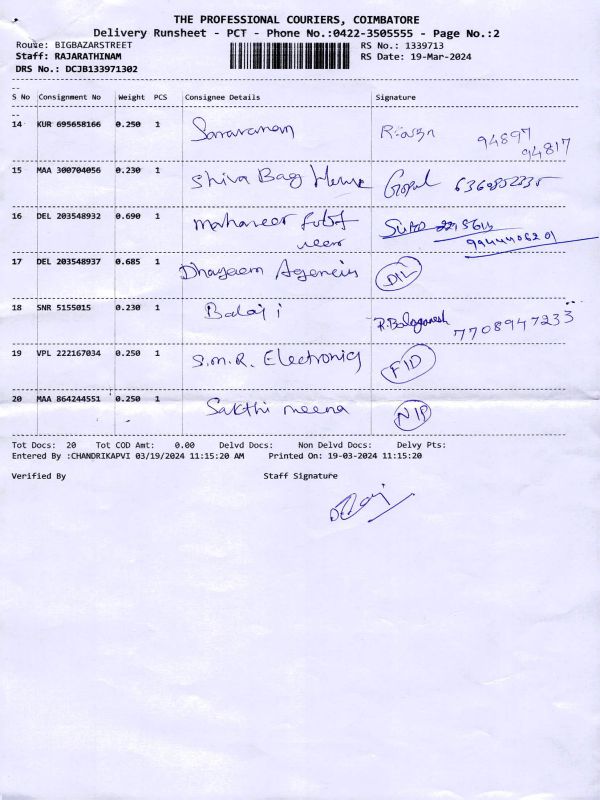 THE PROFESSIONAL COURIERS, COIMBATORE
Delivery Runsheet - PCT - Phone No.:0422-3505555 - Page No.:2
Route: BIGBAZARSTREET RS No.: 1339713
Staff: RAJARATHINAM RS Date: 19-Mar-2024
DRS No.: DCJB133971302
S No Consignment No Weight PCS Consignee Details Signature
14 KUR 695658166 0.250 1 Saravanan 94897
94817
15 MAA 300704056 0.230 1 Shiva Bag House Gopal
16 DEL 203548932 0.690 1 mahaveer
9944406201
17 DEL 203548937 0.685 1 Agencies DIL
18 SNR 5155015 0.230 1 Balaji R.Balaganesh 7708947233
19 VPL 222167034 0.250 1 S.M.R. Electronics FID
20 MAA 864244551 0.250 1 Sakthi meena NIP
Tot Docs: 20 Tot COD Amt: 0.00 Delvd Docs: Non Delvd Docs: Delvy Pts:
Entered By :CHANDRIKAPVI 03/19/2024 11:15:20 AM Printed On: 19-03-2024 11:15:20
Verified By Staff Signature